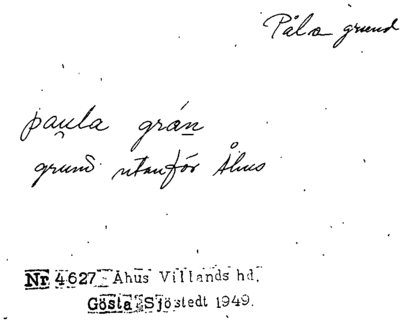 Påla grund
pau̯la grán
grund utanför Åhus
Nr 4627 Åhus Villands hd.
Gösta Sjöstedt 1949.